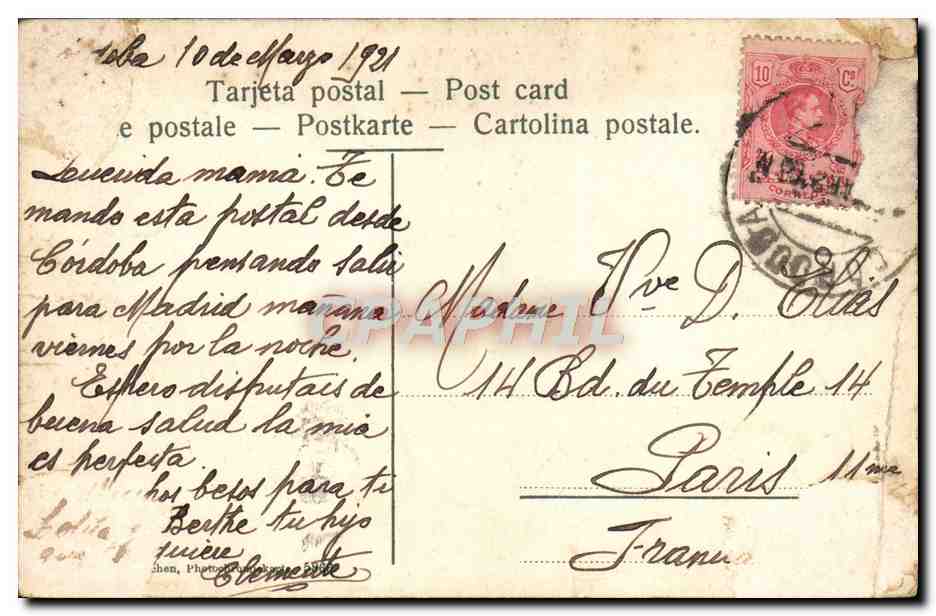 10 de Marzo 1921
Tarjeta postal — Post card
e postale — Postkarte — Cartolina postale.
10 Cs
CORREOS
mamá. Te
mando esta postal desde
Córdoba pensando salir
para Madrid mañana
viernes por la noche.
Espero disfrutais de
buena salud la mia
es perfecta.
hos besos para ti
Berthe tu hijo
quiere
Clemente
hen, Photochromiekarte
Madame Vve D. Elias
14 Bd. du Temple 14
Paris 11me
France
CPAPHIL